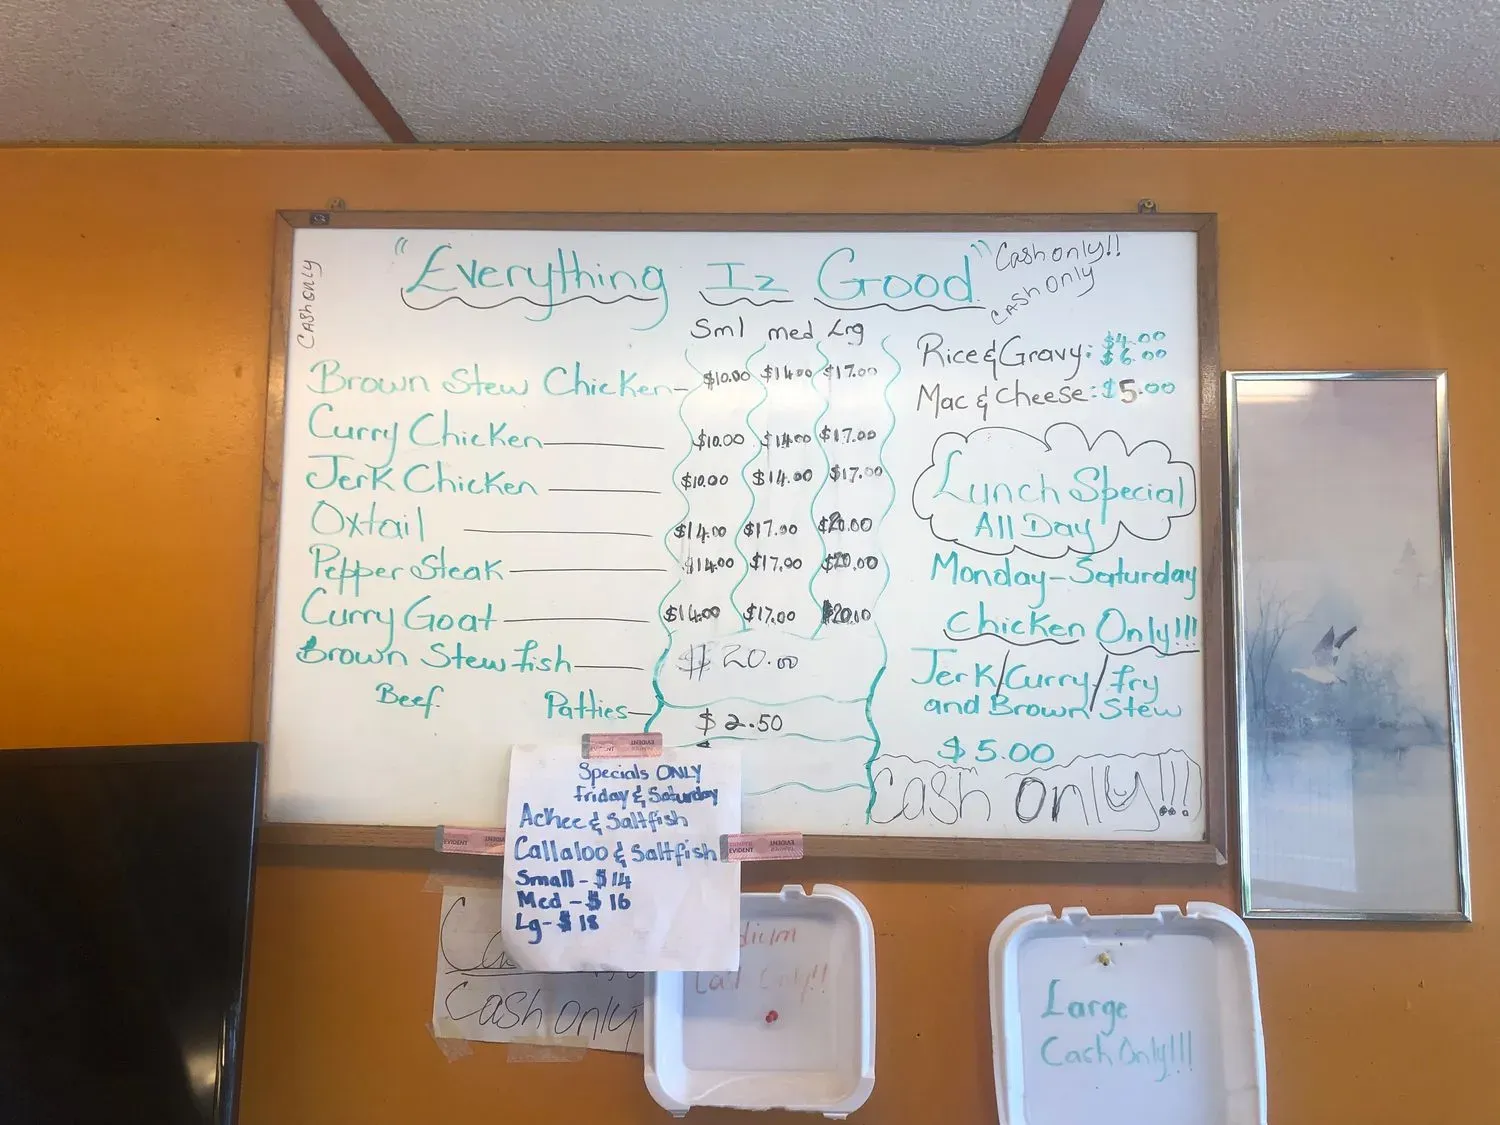 "Everything Iz Good"
Cash only!!
Cash only
Cash only
Sml med Lrg
Brown Stew Chicken- $10.00 $14.00 $17.00
Curry Chicken $10.00 $14.00 $17.00
Jerk Chicken $10.00 $14.00 $17.00
Oxtail $14.00 $17.00 $20.00
Pepper Steak $14.00 $17.00 $20.00
Curry Goat $14.00 $17.00
Brown Stew fish $20.00
Beef Patties $2.50
Rice & Gravy: $4.00
$6.00
Mac & Cheese: $5.00
Lunch Special
All Day
Monday-Saturday
Chicken Only!!!
Jerk/Curry/fry
and Brown Stew
$5.00
Cash only!!!
Specials ONLY
Friday & Saturday
Ackee & Saltfish
Callaloo & Saltfish
Small - $14
Med - $16
Lg - $18
EVIDENT
EVIDENT
EVIDENT
EVIDENT
Cash only
Large
Cash Only!!!